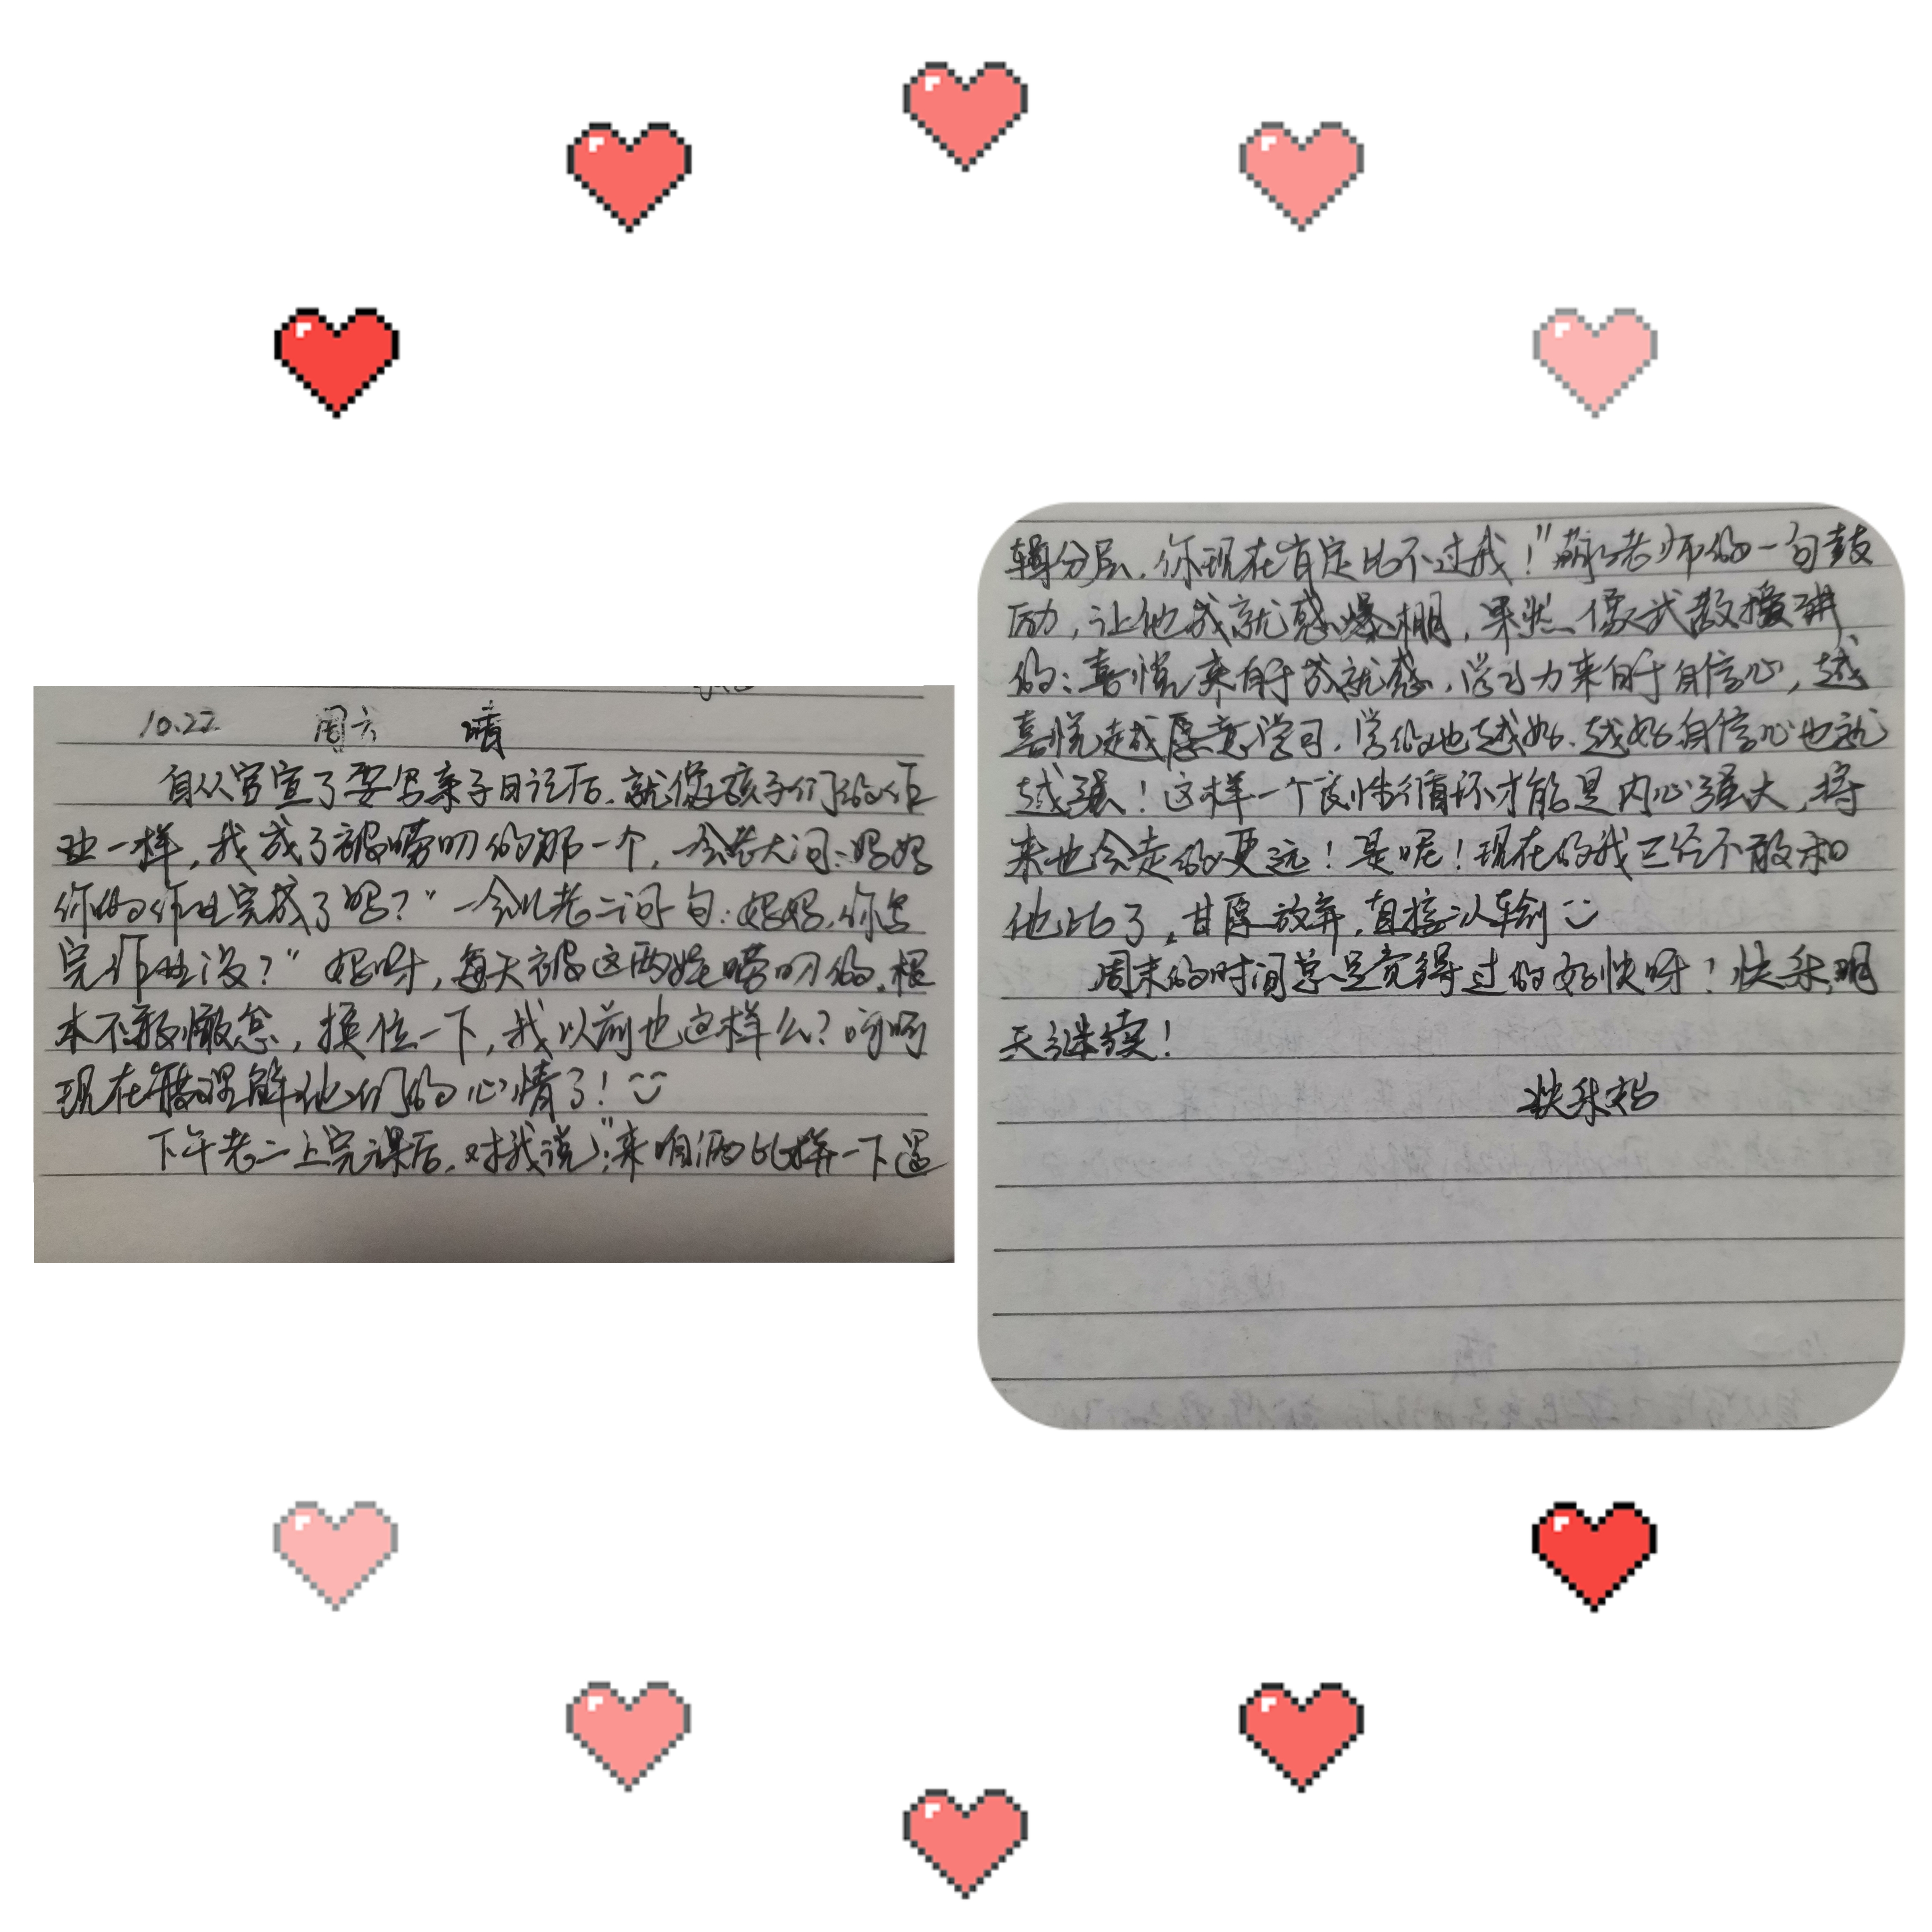 10.22 周六 晴
自从官宣了要写亲子日记后，就像孩子们的作
业一样，我成了被唠叨的那一个，一会老大问：妈妈
你的作业完成了吗？”一会儿老二问句：妈妈，你写
完作业没？”好吧，每天被这两娃唠叨的，根
本不敢懈怠，换位一下，我以前也这样么？呵呵
现在能理解他们的心情了！
下午老二上完课后，对我说：“来咱俩比拼一下逻
辑分层，你现在肯定比不过我！”老师的一句鼓
励，让他成就感爆棚，果然像武教授讲
的：喜悦来自于成就感，学习力来自于自信心，越
喜悦越愿意学习，学的也越好、越好自信心也就
越强！这样一个良性循环才能是内心强大，将
来也会走的更远！是呢！现在的我已经不敢和
他比了，甘愿放弃，直接认输
周末的时间总是觉得过的好快呀！快乐，明
天继续！
快乐